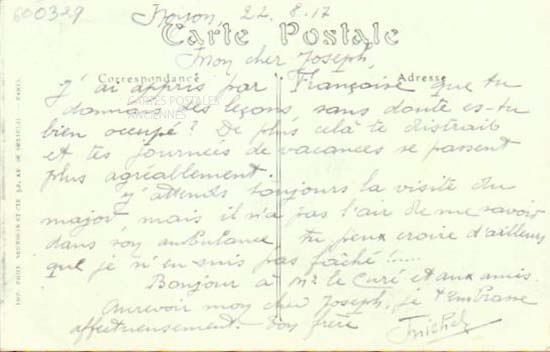 600329
Noyon, 22.8.17
Carte Postale
Mon cher Joseph,
Correspondance
Adresse
J'ai appris par Françoise que tu
CARTES POSTALES
ANCIENNES
donnais des leçons sans doute es-tu
bien occupé? De plus celà te distrait
et tes journées de vacances se passent
plus agréablement.
J'attends toujours la visite du
major mais il n'a pas l'air de me savoir
dans son ambulance, tu peux croire d'ailleurs
que je n'en suis pas fâché!.....
Bonjour à Mr le Curé et aux amis.
Aurevoir mon cher Joseph, je t'embrasse
affectueusement. Ton frère
Michel